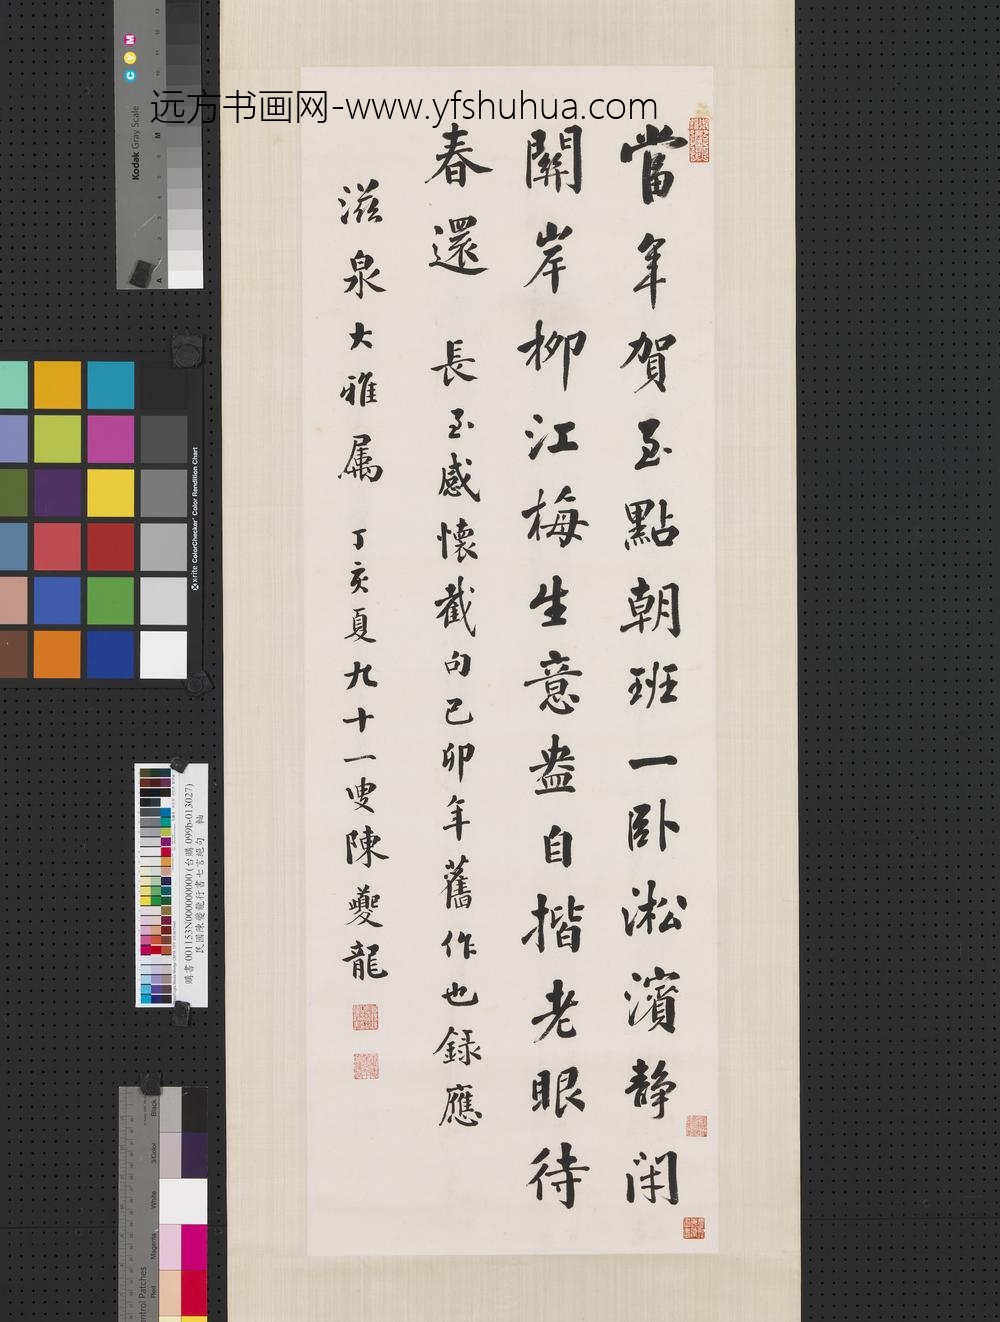 远方书画网-www.yfshuhua.com
當年賀至點朝班一卧淞濱静閑
關岸柳江梅生意盎自揩老眼待
春還 長至感懷截句己卯年舊作也録應
滋泉大雅属 丁亥夏九十一叟陳夔龍
Kodak Gray Scale
C Y M
x-rite ColorChecker Color Rendition Chart
購書 001153N000000000 (台購 099b-013027)
民國陳夔龍行書七言絕句 軸
Black
3/Color
White
Magenta
Red
Control Patches